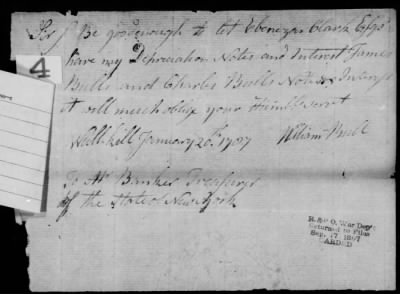 Sir Be good enough to let Ebenezer Clark Esqr
have my Depreciation Notes and Interest James
Bulls and Charles Bulls Notes & Interest
it will much oblige your Humbl servt
January 20th
William Bull
To Mr Banker Treasurer
of the State of New York
4
R. & P. O. War Dep't.
Returned to Files
Sep. 17, 1897
CARDED